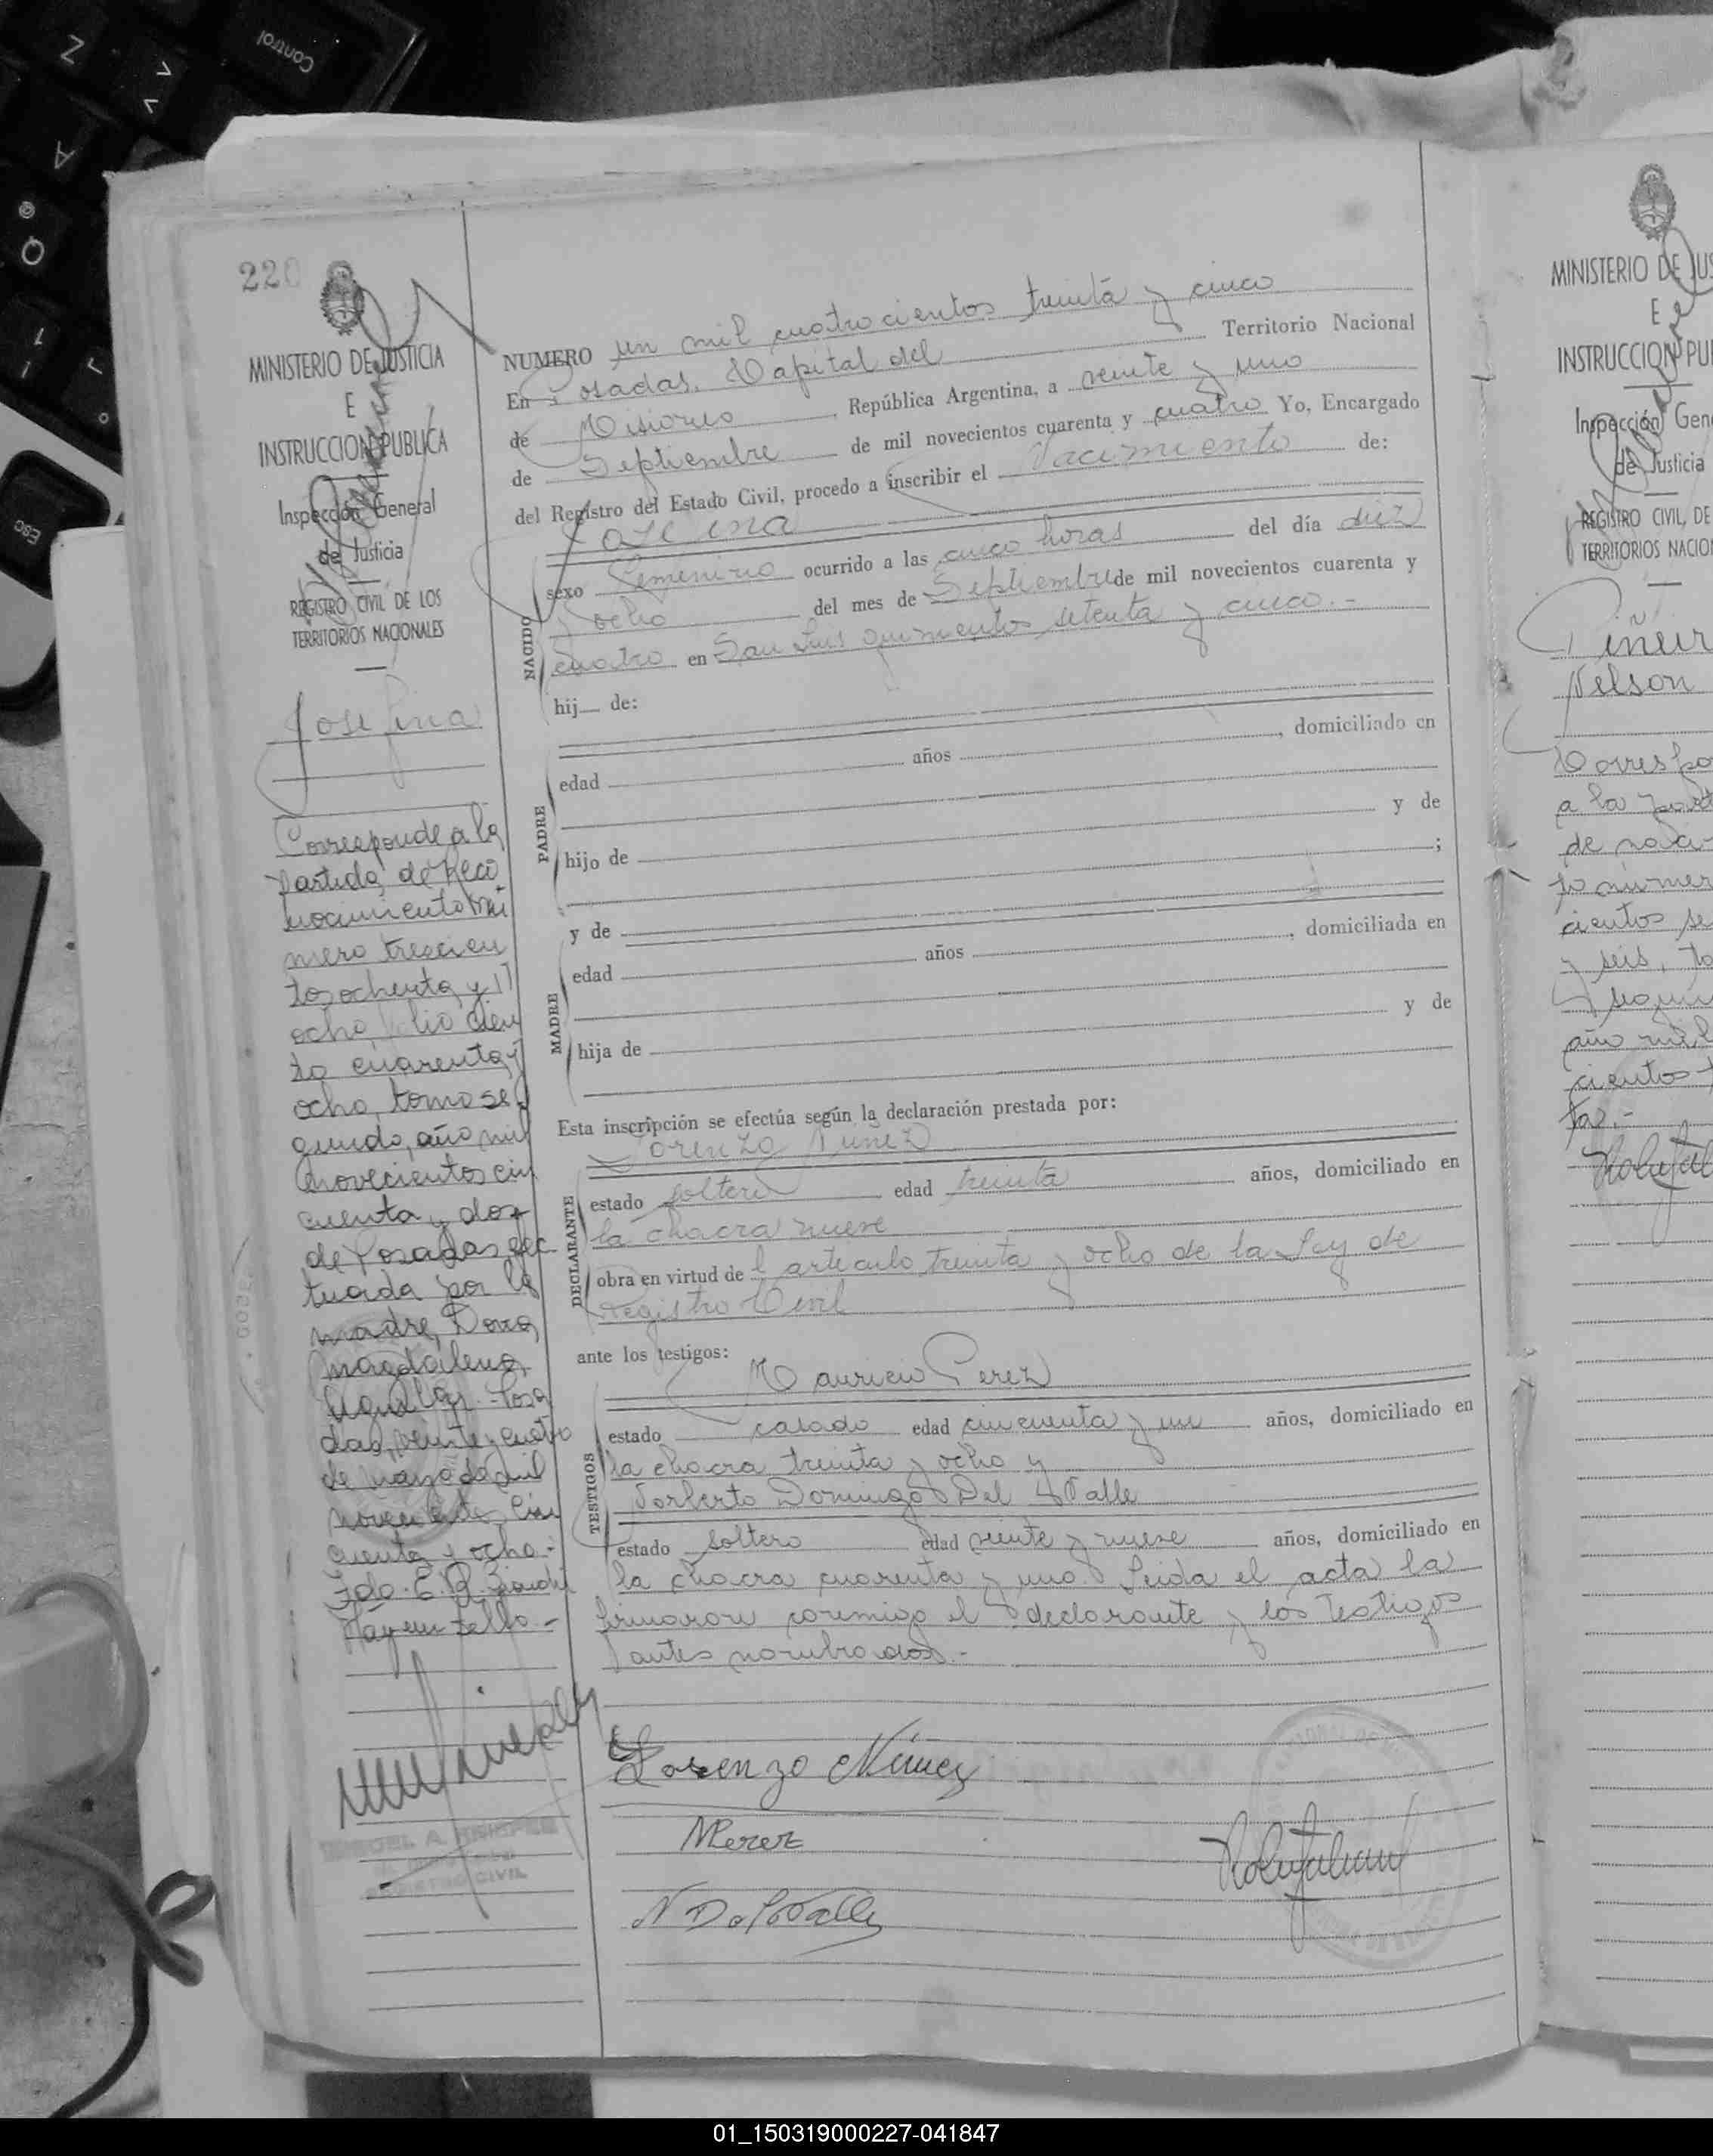 Control
Z
A
Q
Esc
220
MINISTERIO DE JUSTICIA
E
INSTRUCCION PUBLICA
Inspección General
de Justicia
REGISTRO CIVIL DE LOS
TERRITORIOS NACIONALES
Josefina
Corresponde a la
partida de Reco
nocimiento nú
mero trescien
tos ochenta y
ocho, folio cien
to cuarenta y
ocho, tomo se
gundo, año mil
novecientos cin
cuenta y dos
de Posadas, efec
tuada por la
madre, Doña
Magdalena
Posa
das, veinte y cuatro
de mayo de mil
novecientos cin
cuenta y ocho.-
Fdo. E. G.
Hay un sello.-
REGISTRO CIVIL
NUMERO un mil cuatrocientos treinta y cinco
En Posadas, Capital del Territorio Nacional
de Misiones, República Argentina, a veinte y uno
de Septiembre de mil novecientos cuarenta y cuatro Yo, Encargado
del Registro del Estado Civil, procedo a inscribir el Nacimiento de:
NACIDO
Josefina
sexo femenino ocurrido a las cinco horas del día diez
y ocho del mes de Septiembre de mil novecientos cuarenta y
cuatro en San Luis quinientos setenta y cinco.-
hij de:
PADRE
edad años , domiciliado en
hijo de y de
;
MADRE
y de
edad años , domiciliada en
hija de y de
Esta inscripción se efectúa según la declaración prestada por:
DECLARANTE
Lorenzo Núñez
estado soltero edad treinta años, domiciliado en
la chacra nueve
obra en virtud del artículo treinta y ocho de la Ley de
Registro Civil
ante los testigos:
TESTIGOS
Mauricio Perez
estado casado edad cincuenta y un años, domiciliado en
la chacra treinta y ocho y
Norberto Domingo Del Valle
estado soltero edad veinte y nueve años, domiciliado en
la chacra cuarenta y uno. Leida el acta la
firmaron conmigo el declarante y los testigos
antes nombrados.-
Lorenzo Núñez
MPerez
N Del Valle
MINISTERIO DE JUS
E
INSTRUCCION PU
Inspección Gen
de Justicia
REGISTRO CIVIL DE
TERRITORIOS NACIO
Piñeir
Nelson
Correspo
a la
de naci
to númer
cientos se
y seis, to
segun
año mil
cientos
ta.-
01_150319000227-041847